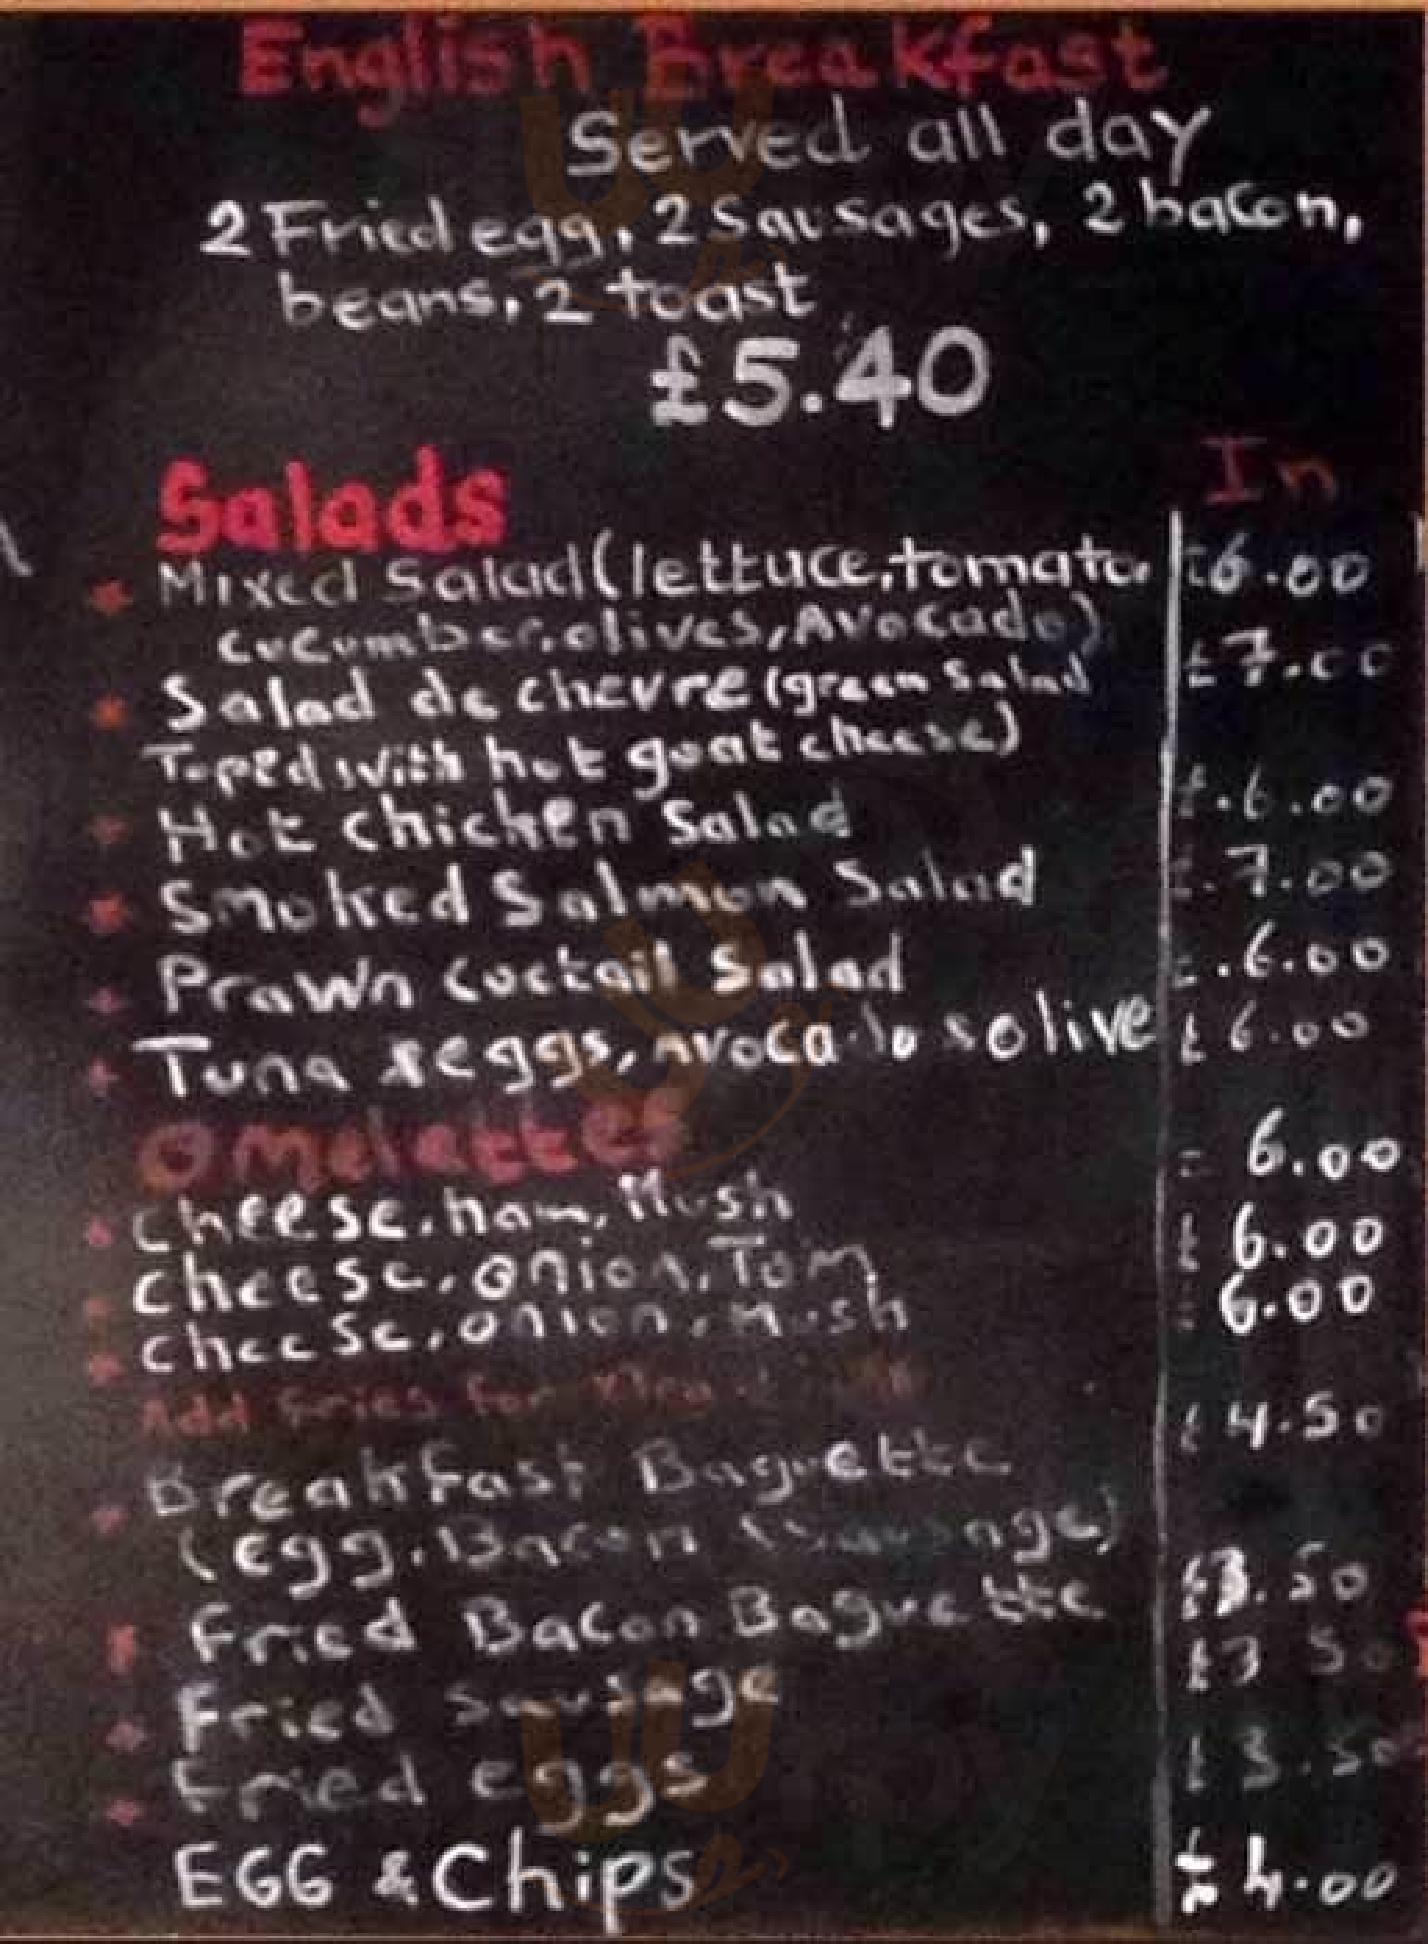 English Breakfast
Served all day
2 Fried egg, 2 Sausages, 2 bacon,
beans, 2 toast
£5.40
Salads In
Mixed Salad (lettuce, tomato £6.00
cucumber, olives, Avocado)
Salad de chevre (green Salad £7.00
Toped with hot goat cheese)
Hot chicken Salad £.6.00
Smoked Salmon Salad £.7.00
Prawn Coctail Salad £.6.00
Tuna & eggs, avocado olive £6.00
Omelettes
Cheese, ham, Mush 6.00
Cheese, onion, Tom £6.00
Cheese, onion, Mush 6.00
Add fries for
Breakfast Baguette £4.50
(egg, Bacon, Sausage)
Fried Bacon Baguette £3.50
Fried Sausage £3.50
Fried eggs £3.50
EGG & Chips £4.00